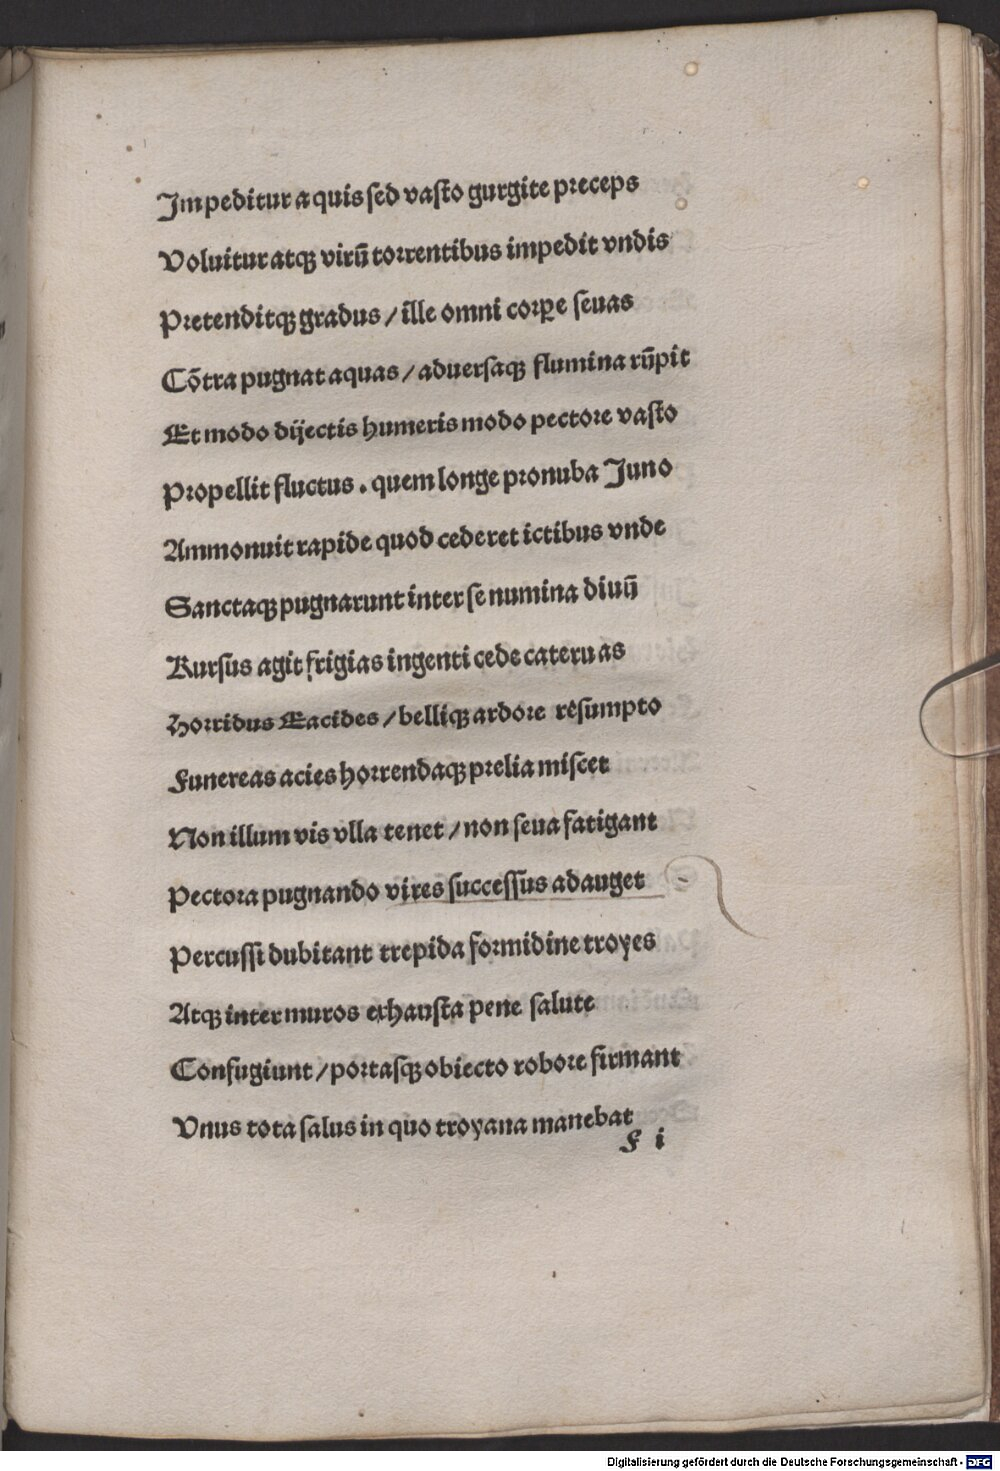 Impeditur aquis ſed vaſto gurgite preceps
Voluitur atqꝫ virū torrentibus impedit vndis
Pretenditqꝫ gradus / ille omni corꝑe ſeuas
Cōtra pugnat aquas / aduerſaqꝫ flumina rūpit
Et modo dijectis humeris modo pectore vaſto
Propellit fluctus . quem longe pronuba Juno
Ammonuit rapide quod cederet ictibus vnde
Sanctaqꝫ pugnarunt inter ſe numina diuū
Rurſus agit frigias ingenti cede cateruas
Horridus Eacides / belliqꝫ ardore reſumpto
Funereas acies horrendaqꝫ prelia miſcet
Non illum vis vlla tenet / non ſeua fatigant
Pectora pugnando vires ſucceſſus adauget
Percuſſi dubitant trepida formidine troyes
Atqꝫ inter muros exhauſta pene ſalute
Confugiunt / portaſqꝫ obiecto robore firmant
Vnus tota ſalus in quo troyana manebat
F i
Digitalisierung gefördert durch die Deutsche Forschungsgemeinschaft - DFG